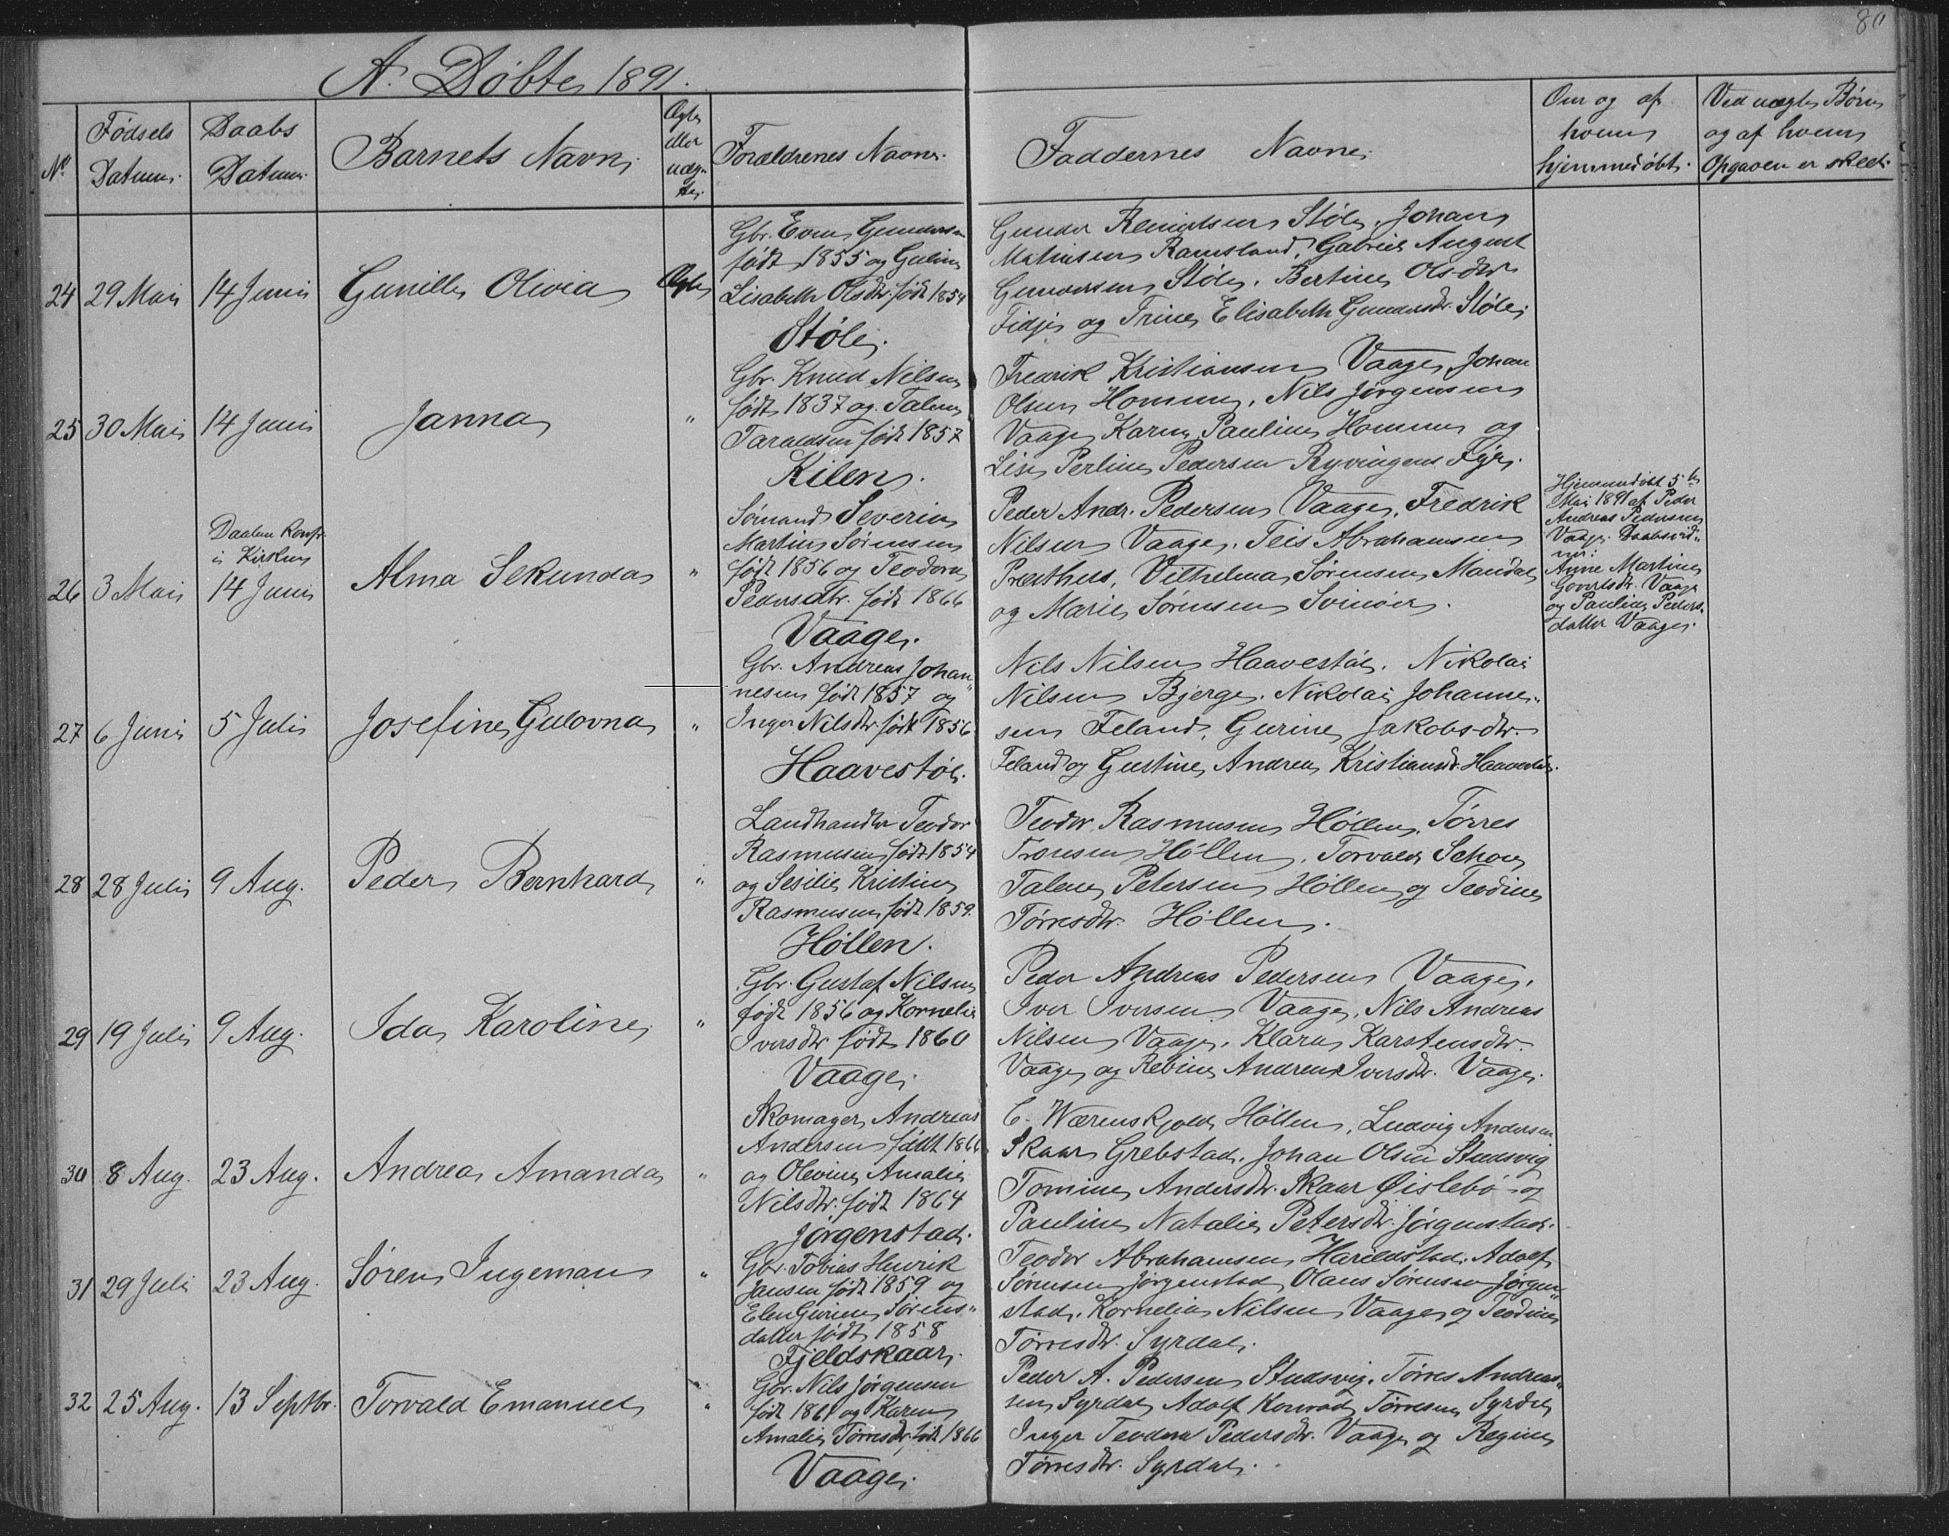 80
A. Døbte 1891.
No
Fødsels
Datum.
Daabs
Datum.
Barnets Navn.
Ægte
eller
uæg-
te.
Forældrenes Navne.
Faddernes Navne.
Om og af
hvem
hjemmedøbt.
Ved uægte Børn
og af hvem
Opgaven er skeet.
24
29 Mai
14 Juni
Gunille Olivia
Ægte
Gbr. Even Gundersen
født 1855 og Guline
Lisabeth Olsdtr. født 1854
Støle.
Gunder Støle, Johan
Mathisen Ramsland, Gabriel August
Gundersen Støle, Bertine Olsdtr.
Fidje og Trine Elisabeth Gundersdtr. Støle.
25
30 Mai
14 Juni
Janna
"
Gbr. Knud Nilsen
født 1837 og Talene
Taraldsen født 1857
Kilen.
Fredrik Kristiansen Vaage, Johan
Olsen Homme, Nils Jørgensen
Vaage, Karen Pauline Homme og
Lise Perline Pedersen Ryvingens Fyr.
26
3 Mai
Daaben konf.
i Kirken
14 Juni
Alma Sekunda
"
Sømand Severin
Martin Sørensen
født 1856 og Teodora
Pedersdtr. født 1866
Vaage.
Peder Andr. Pedersen Vaage, Fredrik
Nilsen Vaage, Teis Abrahamsen
Præsthus, Vilhelma Sørensen Mandal
og Marie Sørensen Svinøer.
Hjemmedøbt 5te
Mai 1891 af Peder
Andreas Pedersen
Vaage. Daabsvid-
ner:
Anne Martine
Govertsdtr. Vaage
og Pauline Peders-
datter Vaage.
27
6 Juni
5 Juli
Josefine Gulovna
"
Gbr. Andreas Johan-
nesen født 1857 og
Inger Nilsdtr. født 1856
Haavestøl.
Nils Nilsen Haavestøl, Nikolai
Nilsen Bjerge, Nikolai Johanne-
sen Feland, Gurine Jakobsdtr.
Feland og Gustine Andrea Kristiansdr. Haavestøl.
28
28 Juli
9 Aug.
Peder Bernhard
"
Landhandler Teodor
Rasmusen født 1854
og Sesilie Kristine
Rasmusen født 1859.
Høllen.
Teodor Rasmusen Høllen, Tørres
Tronsen Høllen, Torvald Schou
Talene Petersen Høllen og Teodine
Tørresdtr. Høllen.
29
19 Juli
9 Aug.
Ida Karoline
"
Gbr. Gustaf Nilsen
født 1856 og Kornelia
Iversdtr. født 1860
Vaage.
Peder Andreas Pedersen Vaage,
Iver Iversen Vaage, Nils Andreas
Nilsen Vaage, Klara Karstensdtr.
Vaage og Rebine Andrea Iversdtr. Vaage.
30
8 Aug.
23 Aug.
Andrea Amanda
"
Skomager Andreas
Andersen født 1866
og Olevine Amalie
Nilsdtr. født 1864
Jørgenstad.
C. Wærenskjold Høllen, Ludvig Andersen
Skaar Grebstad, Johan Olsen Studsvig
Tomine Andersdtr. Skaar Øislebø og
Pauline Natalie Petersdtr. Jørgenstad.
31
29 Juli
23 Aug.
Søren Ingeman
"
Gbr. Tobias Henrik
Jansen født 1859 og
Elen Gurine Sørens-
datter født 1858
Fjeldskaar.
Teodor Abrahamsen Harildstad, Adolf
Sørensen Jørgenstad, Olaus Sørensen Jørgen-
stad, Kornelia Nilsen Vaage og Teodine
Tørresdtr. Syrdal.
32
25 Aug.
13 Septbr.
Torvald Emanuel
"
Gbr. Nils Jørgensen
født 1861 og Karen
Amalie Tørresdtr. født 1866
Vaage.
Peder A. Pedersen Studsvig, Tørres Andreas-
sen Syrdal, Adolf Konrad Tørresen Syrdal
Inger Teodora Pedersdtr. Vaage og Regine
Tørresdtr. Syrdal.